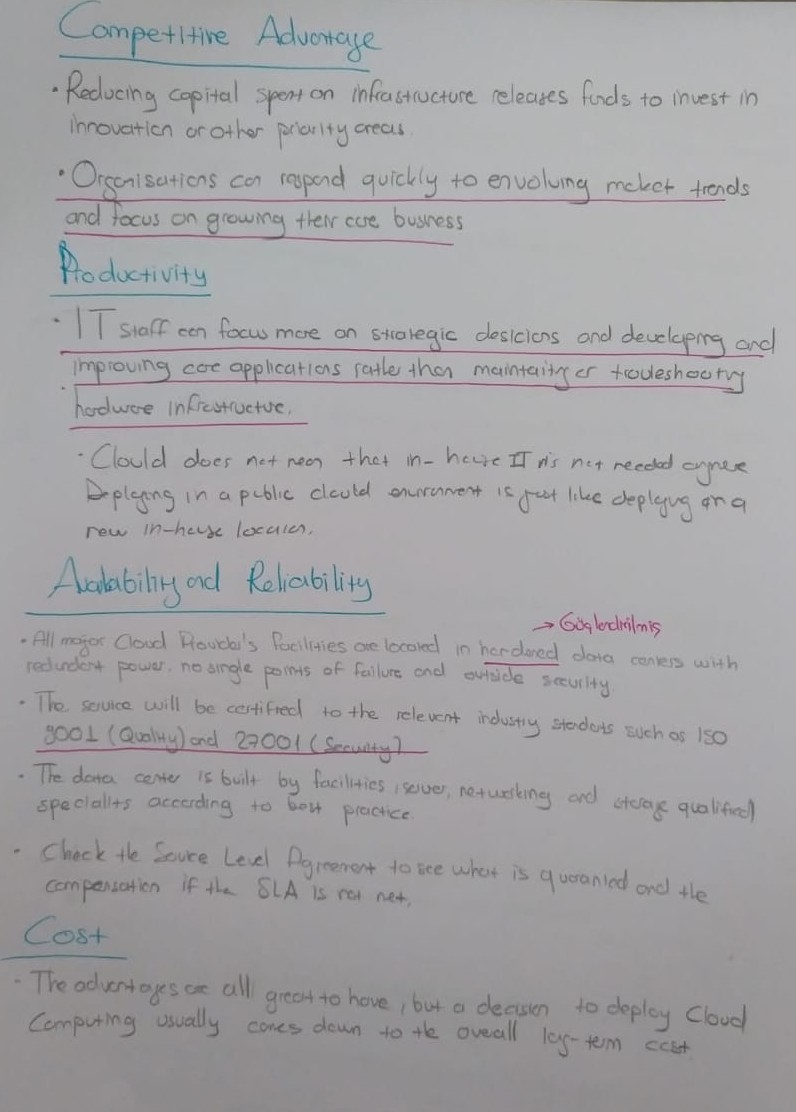 Competitive Advantage
• Reducing capital spent on infrastructure releases funds to invest in
innovation or other priority areas.
• Organisations can respond quickly to envolving market trends
and focus on growing their core business
Productivity
• IT staff can focus more on strategic desicions and developing and
improving core applications rather then maintaing or troubleshooting
hardware infrastructure.
• Clould does not mean that in-house IT is not needed anymore
Deploying in a public clould environment is just like deploying in a
new in-house location.
Availability and Reliability
→ Güçlendirilmiş
• All major Cloud Provider's facilities are located in hardened data centers with
redundent power, no single points of failure and outside security
• The service will be certified to the relevent industry standarts such as ISO
9001 (Quality) and 27001 (Security)
• The data center is built by facilities, server, networking and storage qualified
specialits according to best practice.
• Check the Service Level Agreement to see what is quaranted and the
compensation if the SLA is not met.
Cost
• The advantages are all great to have, but a decision to deploy Cloud
Computing usually comes down to the overall long-term cost